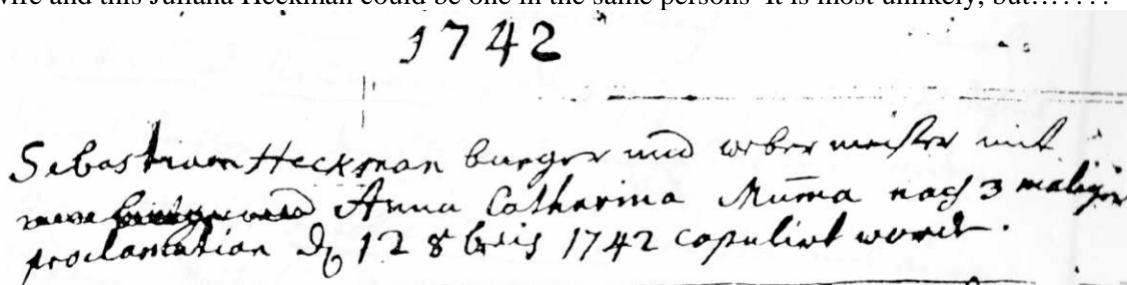 wife and this Juliana Heckman could be one in the same persons It is most unlikely, but........
1742
Sebastiam Heckman burger und weber meister mit
Anna Catharina Mum̄a nach 3 maliger
proclamation d 12 8bris 1742 copulirt wordt.